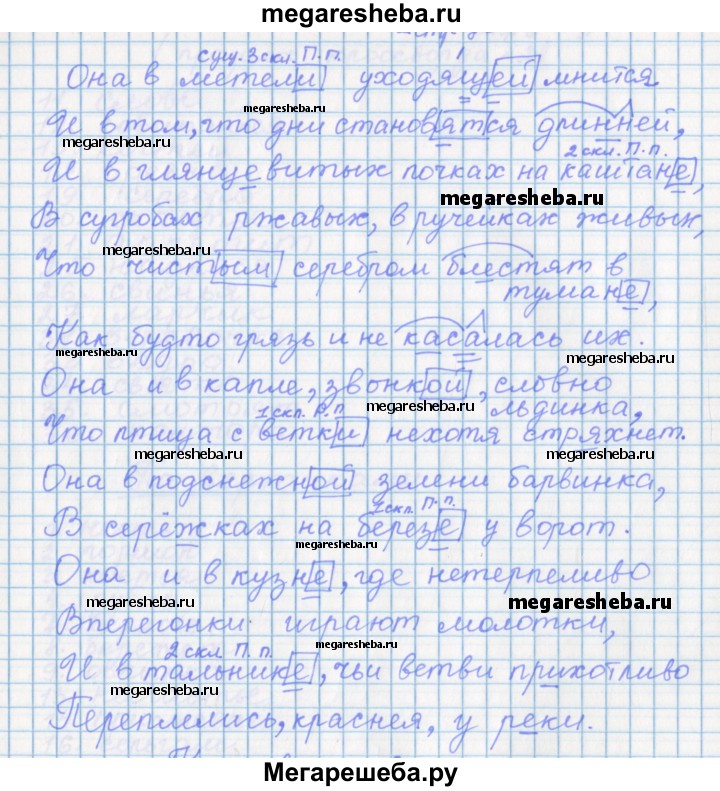 megaresheba.ru
сущ. 3 скл. П. п.
Она в метели уходящей мнится
megaresheba.ru
И в том, что дни становятся длинней,
megaresheba.ru
2 скл. П. п.
И в глянцевитых почках на каштане,
megaresheba.ru
В сугробах ржавых, в ручейках живых,
megaresheba.ru
Что чистым серебром блестят в
тумане,
megaresheba.ru
Как будто грязь и не касалась их.
megaresheba.ru
megaresheba.ru
Она и в капле, звонкой, словно
megaresheba.ru
льдинка,
1 скл. Р. п
Что птица с ветки нехотя стряхнет.
megaresheba.ru
megaresheba.ru
Она в подснежной зелени барвинка,
1 скл. П. п.
В серёжках на березе у ворот.
megaresheba.ru
Она и в кузне, где нетерпеливо
megaresheba.ru
megaresheba.ru
Вперегонки играют молотки,
megaresheba.ru
2 скл. П. п.
И в тальнике, чьи ветви прихотливо
megaresheba.ru
Переплелись, краснея, у реки.
Мегарешеба.ру